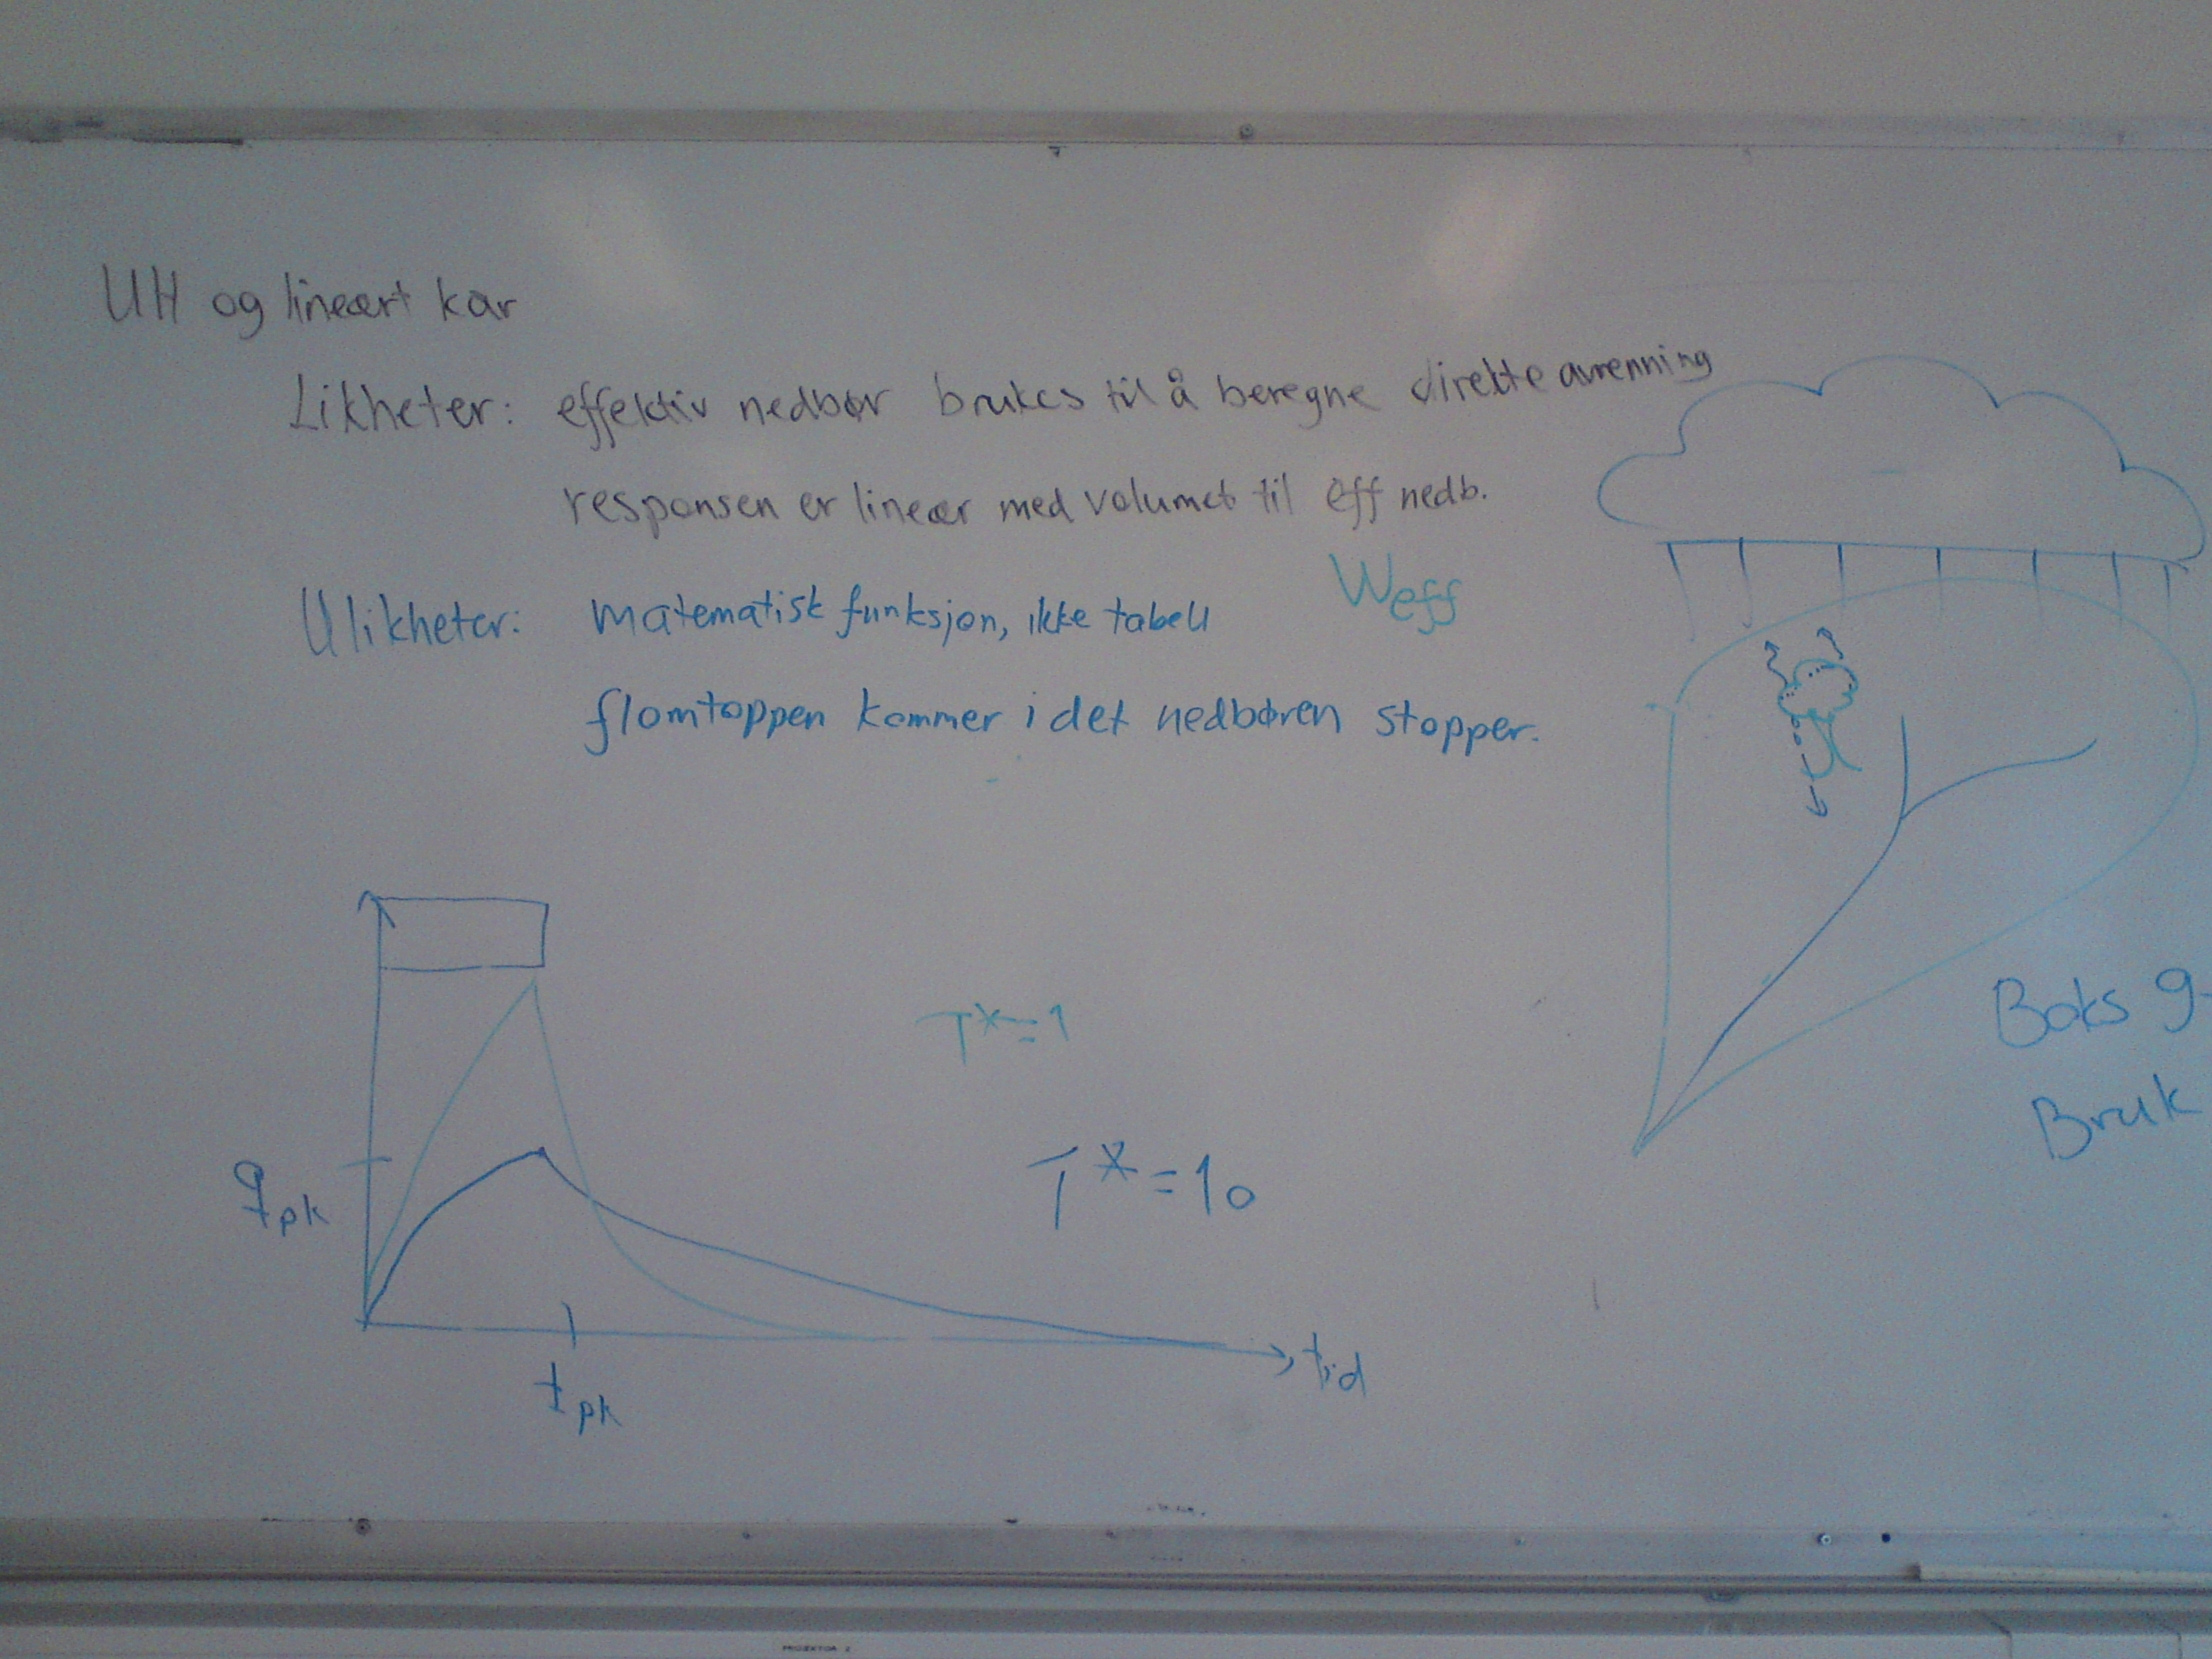 UH og lineært kar
Likheter: effektiv nedbør brukes til å beregne direkte avrenning
responsen er lineær med volumet til eff nedb.
Weff
Ulikheter: Matematisk funksjon, ikke tabell
flomtoppen kommer i det nedbøren stopper.
T*=1
T*=10
qpk
tpk
tid
Boks 9-
Bruk
PROJEKTOR 2